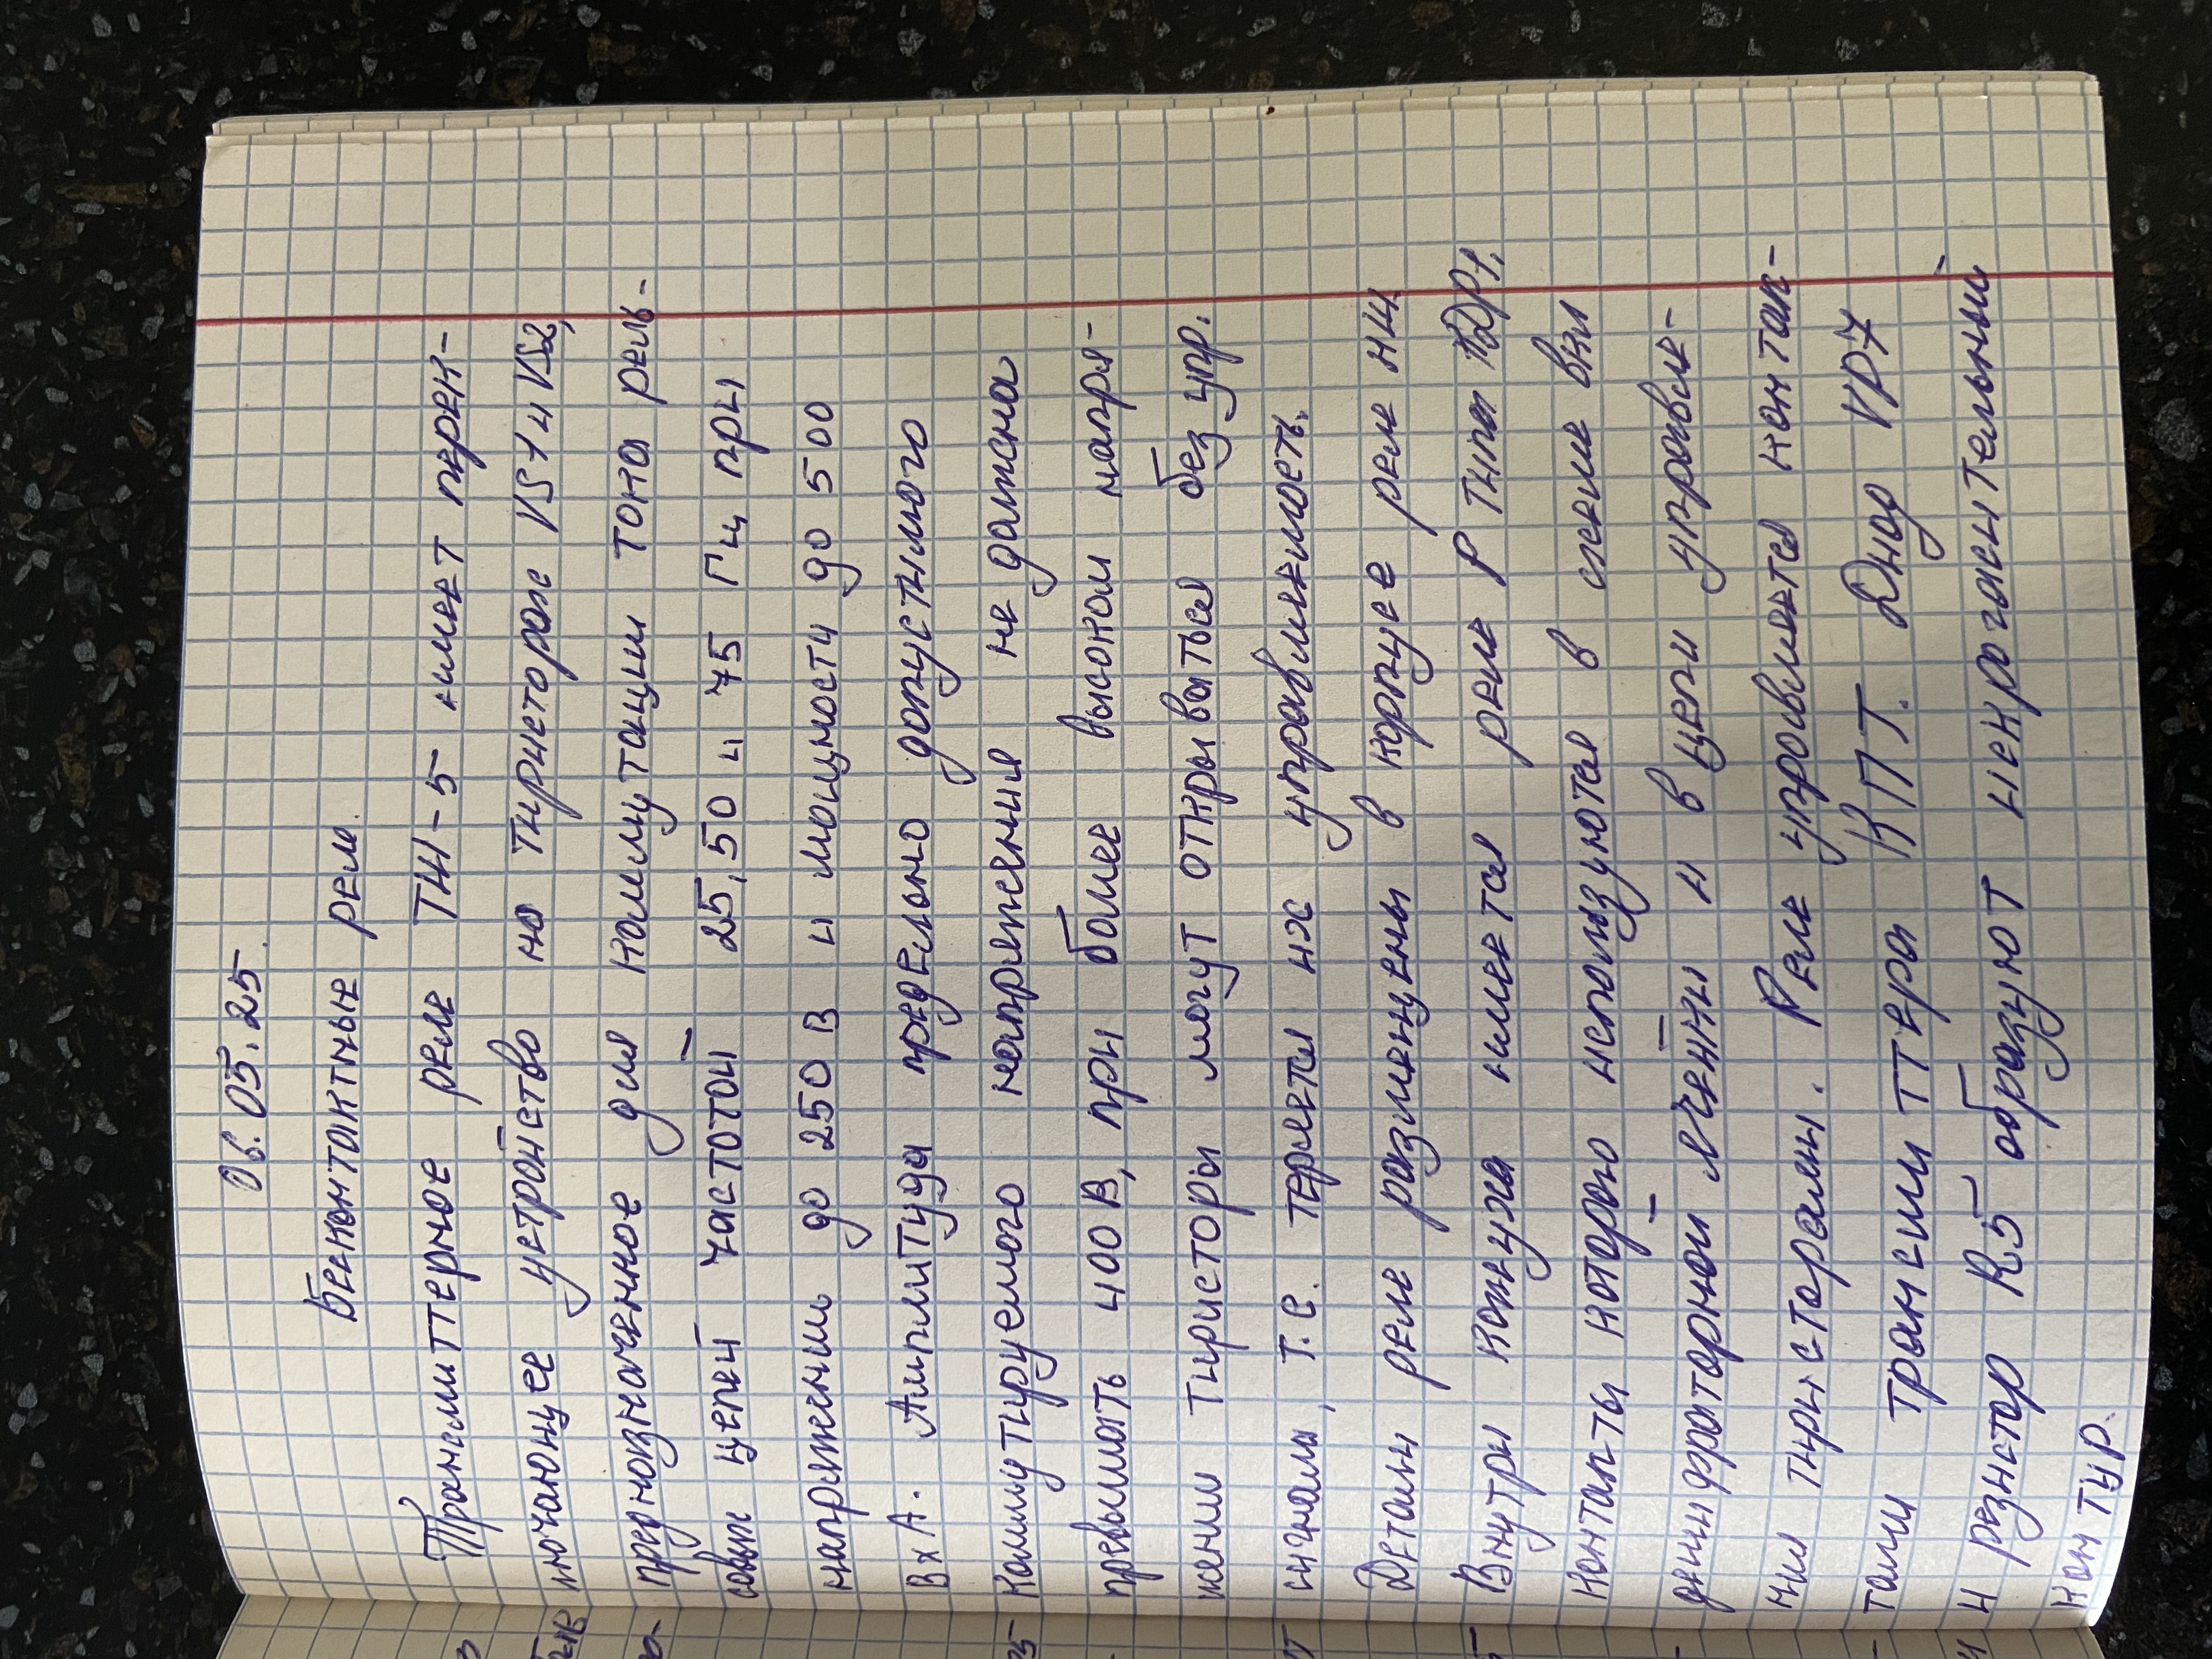 06.05.25.
Бесконтактные реле.
Трансмиттерное реле ТШ-5 имеет перек-
лючающее устройство на тиристорах VS1 и VS2,
предназначенное для коммутации тока рель-
совых цепей частотой 25, 50 и 75 Гц при
напряжении до 250 В и мощности до 500
ВхА. Амплитуда предельно допустимого
коммутируемого напряжения не должна
превышать 400 В, при более высоком напря-
жении тиристоры могут открываться без упр.
сигнала, т.е. теряется их управляемость.
Детали реле размещены в корпусе реле НШ
Внутри кожуха имеется реле Р типа ПДР1,
контакты которого используются в схеме вкл
демпфраторной ячейки и в цепи управле-
ния тиристорами. Реле управляется контак-
тами трансмиттера КПТ. Диод VD7
и резистор R5 образуют искрогасительный
контур.